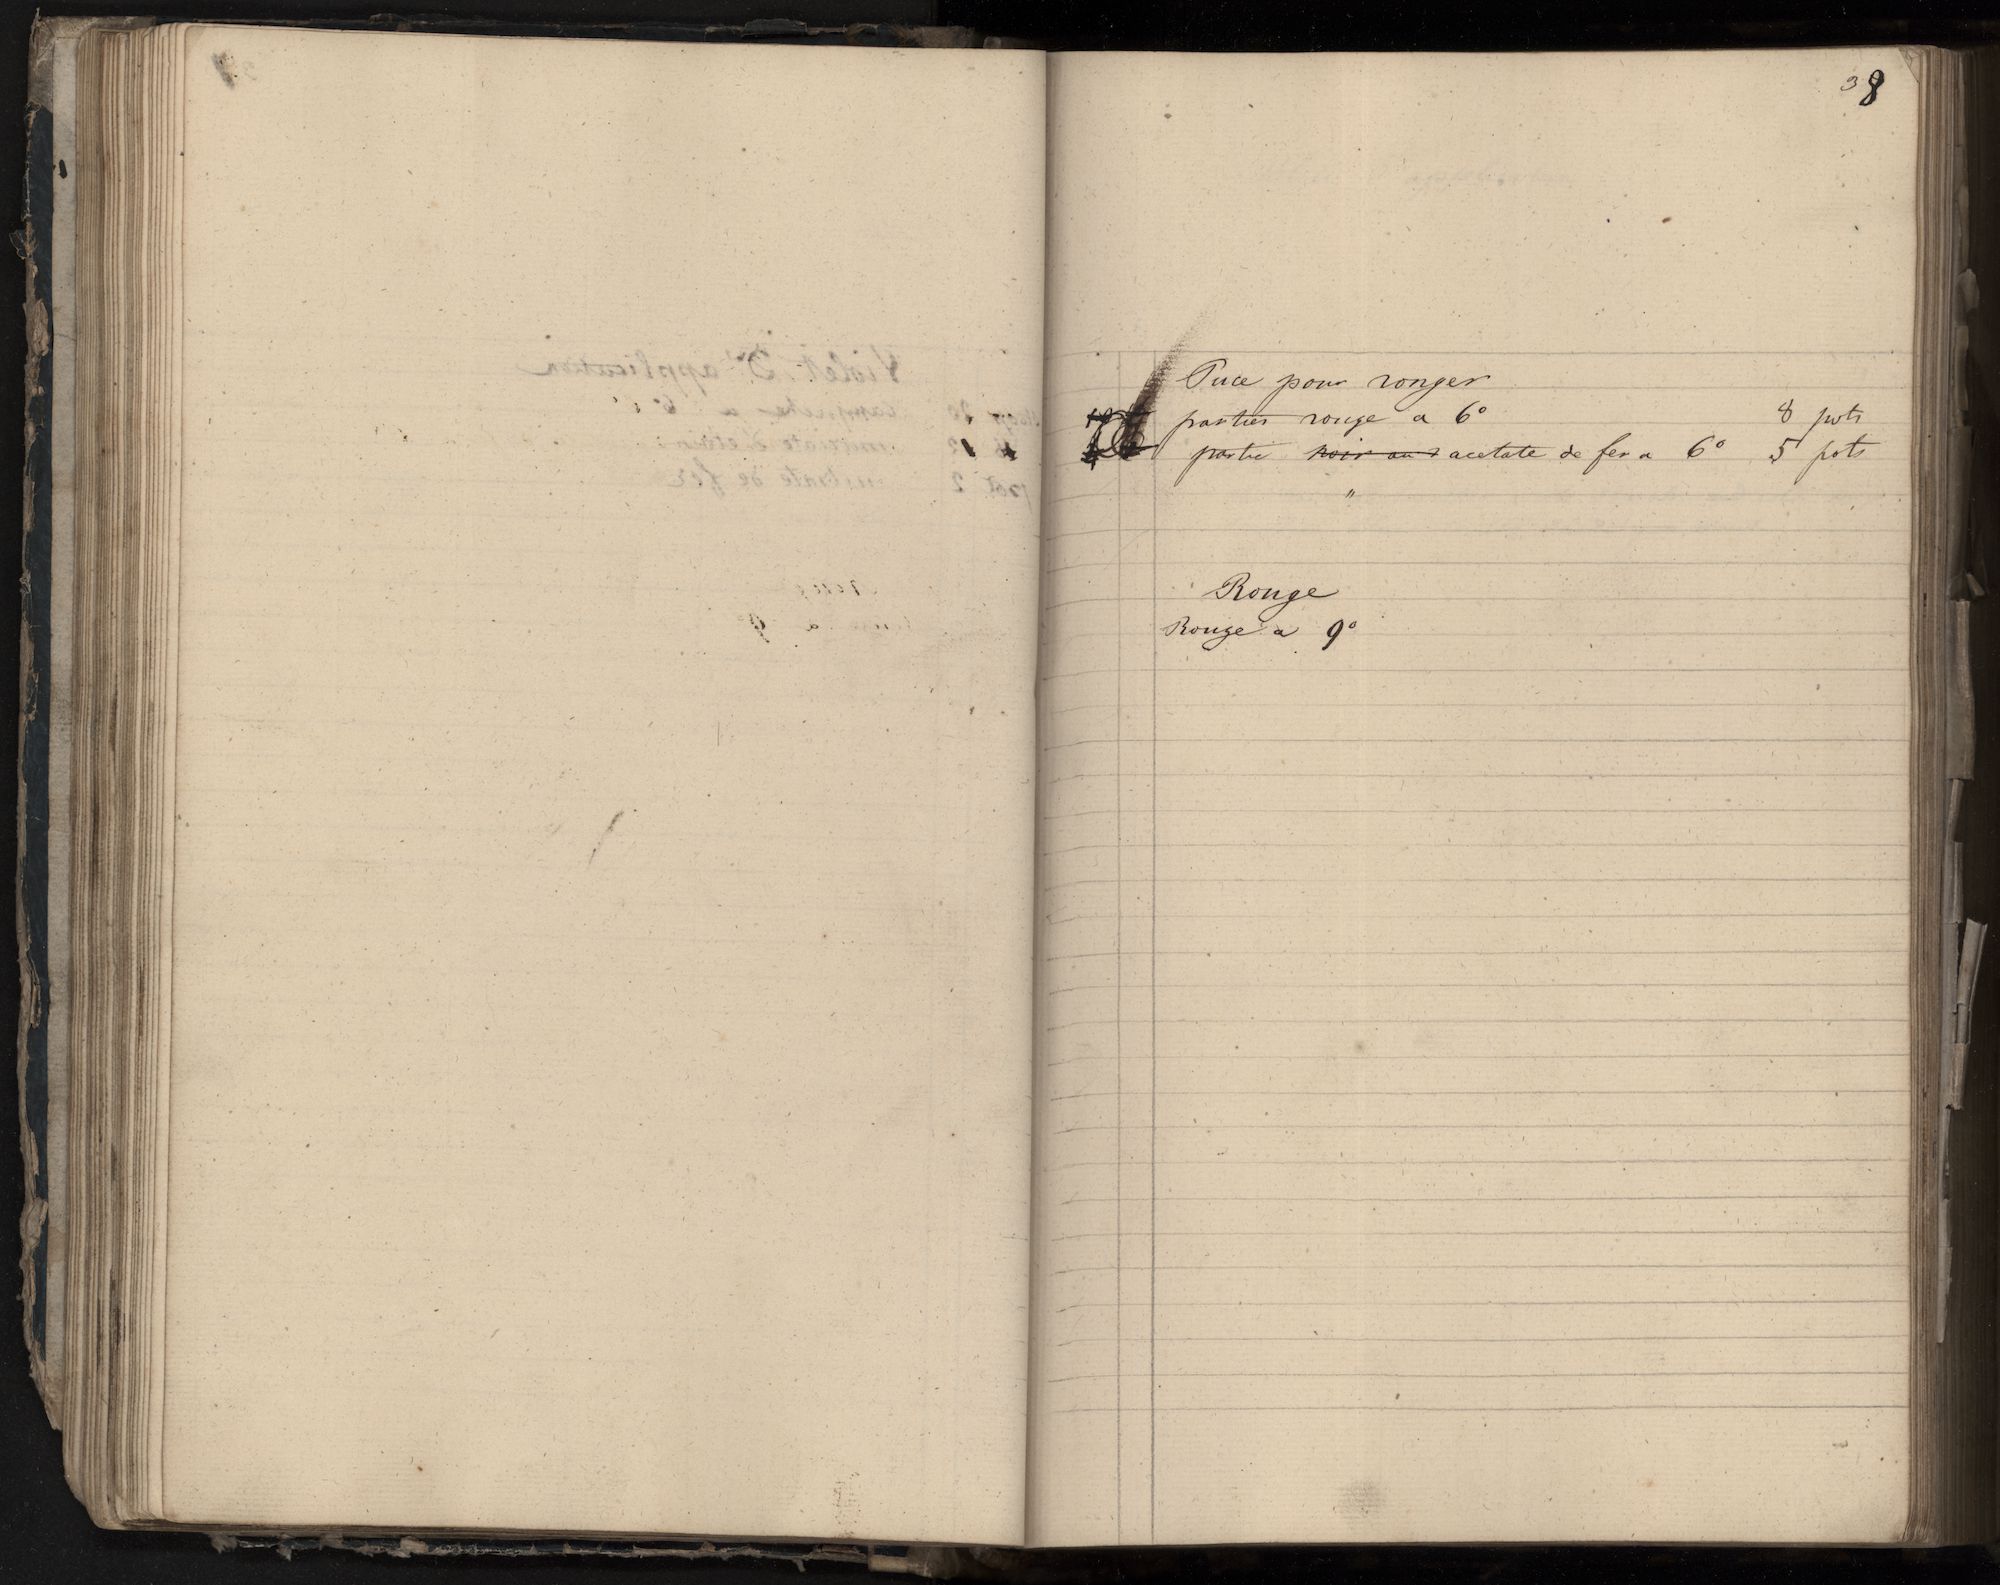 38
Puce pour ronger
parties rouge a 6° 8 pots
partie noir au acetate de fer a 6° 5 pots
"
Rouge
Rouge a 9°